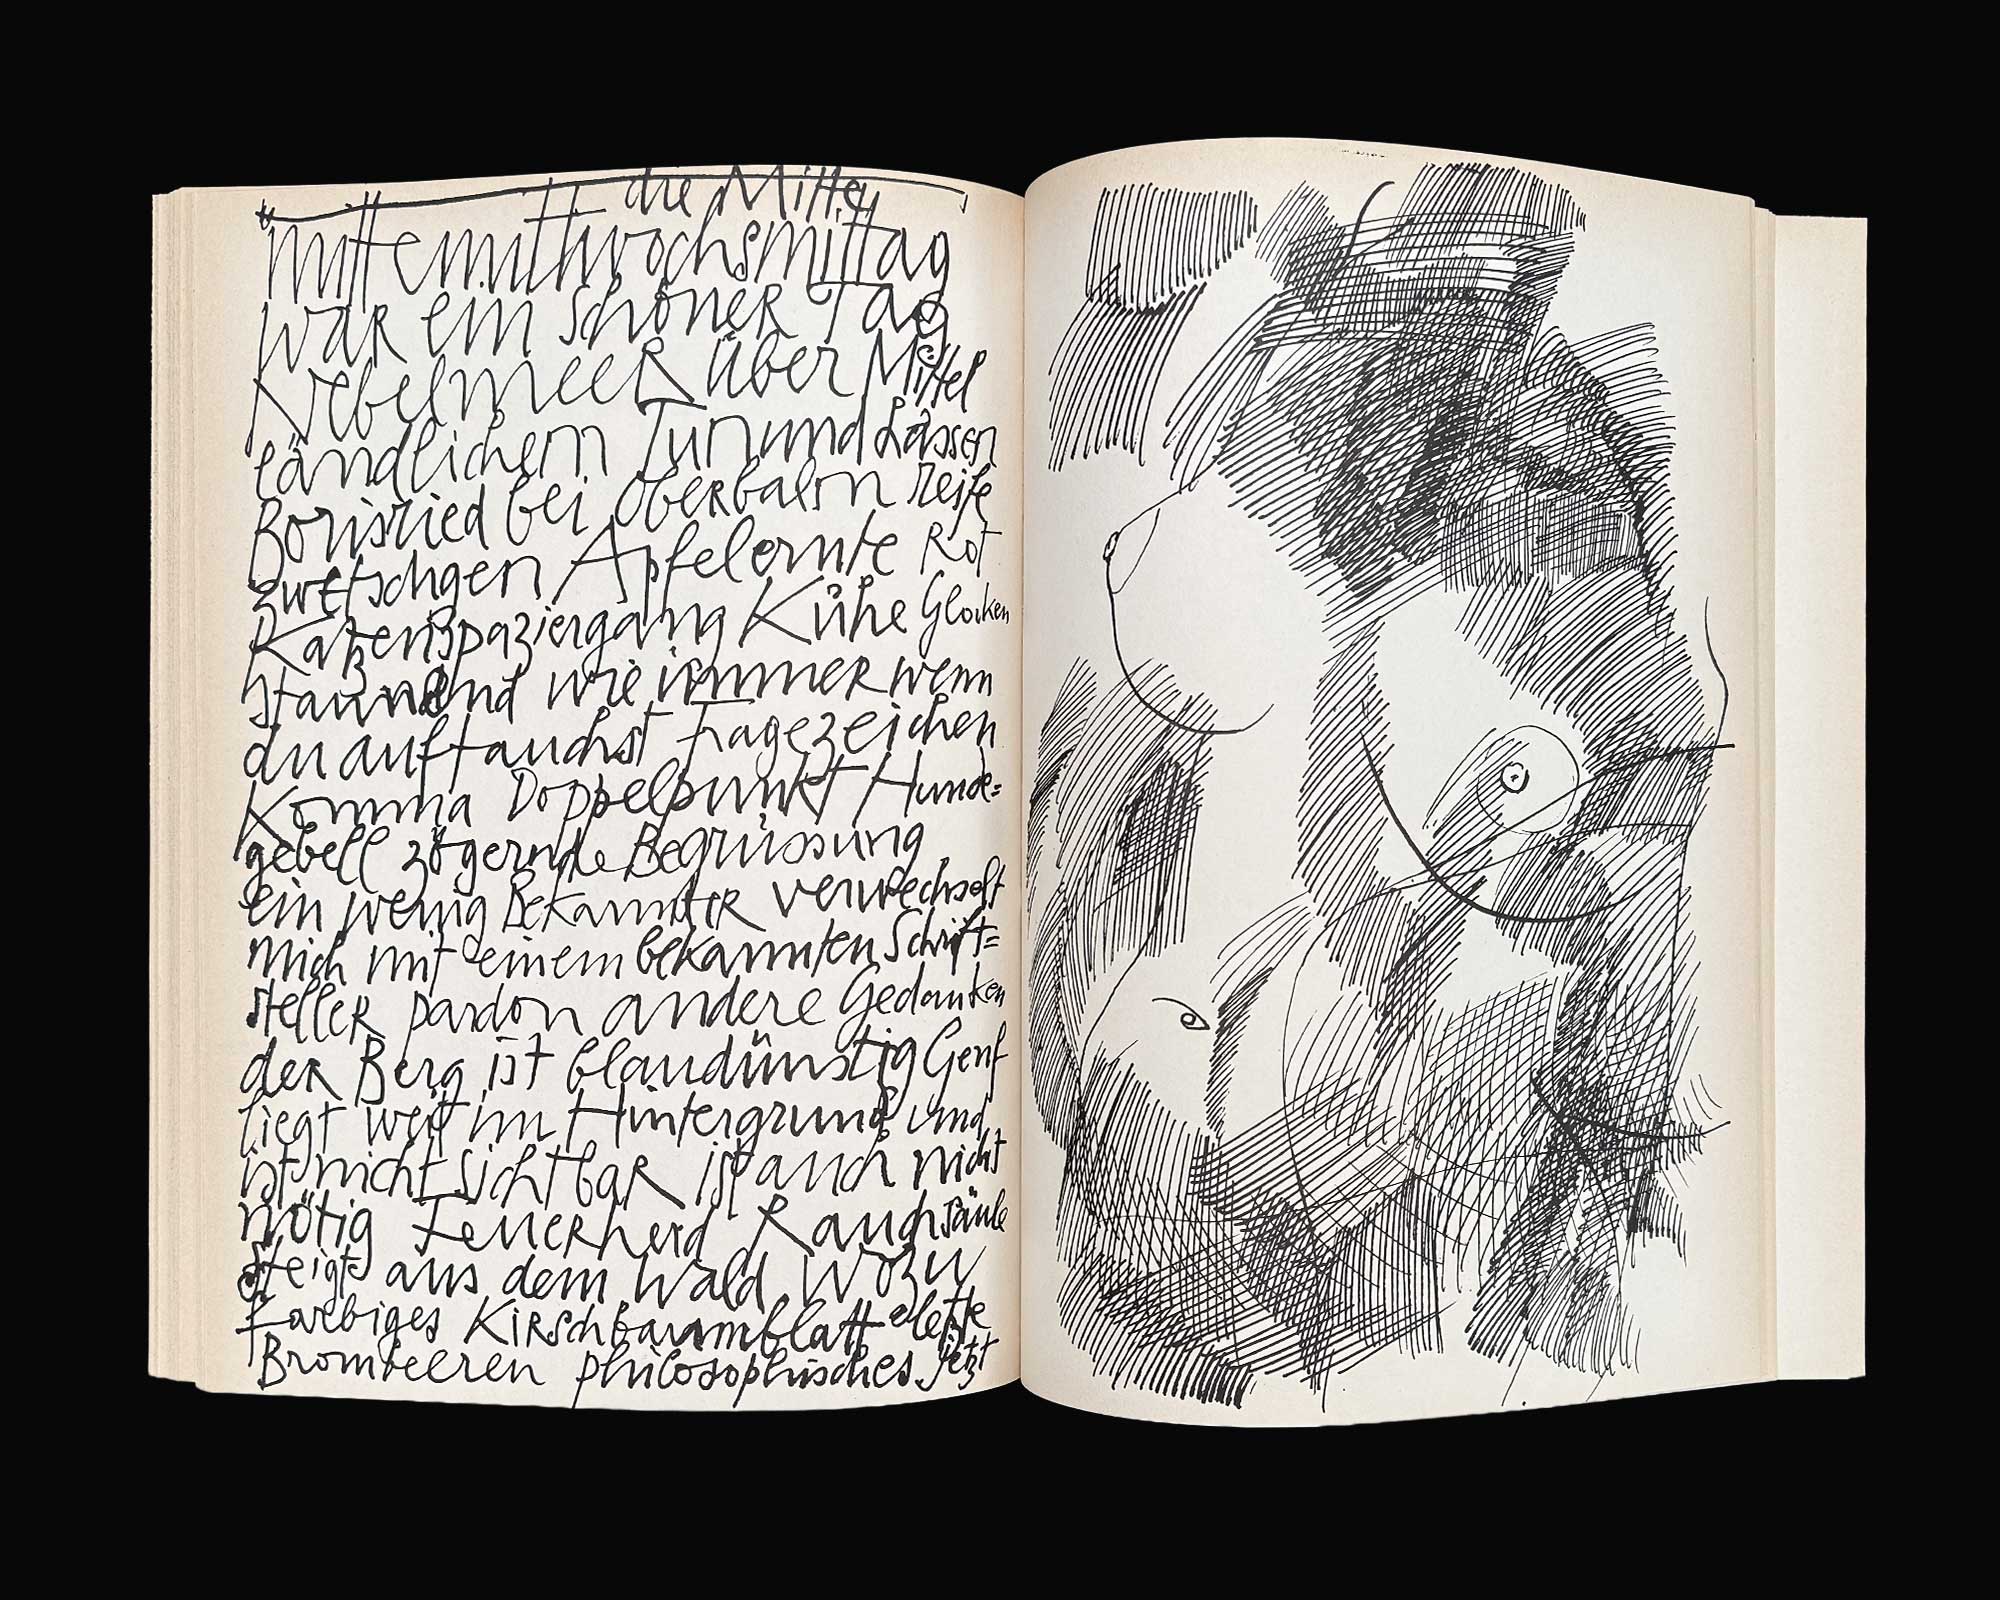 die Mitte
mittemittwochsmittag
war ein schöner Tag
Nebelmeer über Mittel
ländlichem Tun und Lassen
Borisried bei Oberbalm reife
zwetschgen Apfelernte Rot
Katzenspaziergang Kühe Glocken
staunend wie immer wenn
du auftauchst Fragezeichen
Komma Doppelpunkt Hunde=
gebell zögernde Begrüssung
ein wenig Bekannter verwechselt
mich mit einem bekannten Schrift=
steller pardon andere Gedanken
der Berg ist blaudünstig Genf
liegt weit im Hintergrund und
ist nicht sichtbar ist auch nicht
nötig Feuerherd Rauchsäule
steigt aus dem Wald Wozu
farbiges Kirschbaumblatt letzte
Brombeeren philosophisches Jetzt